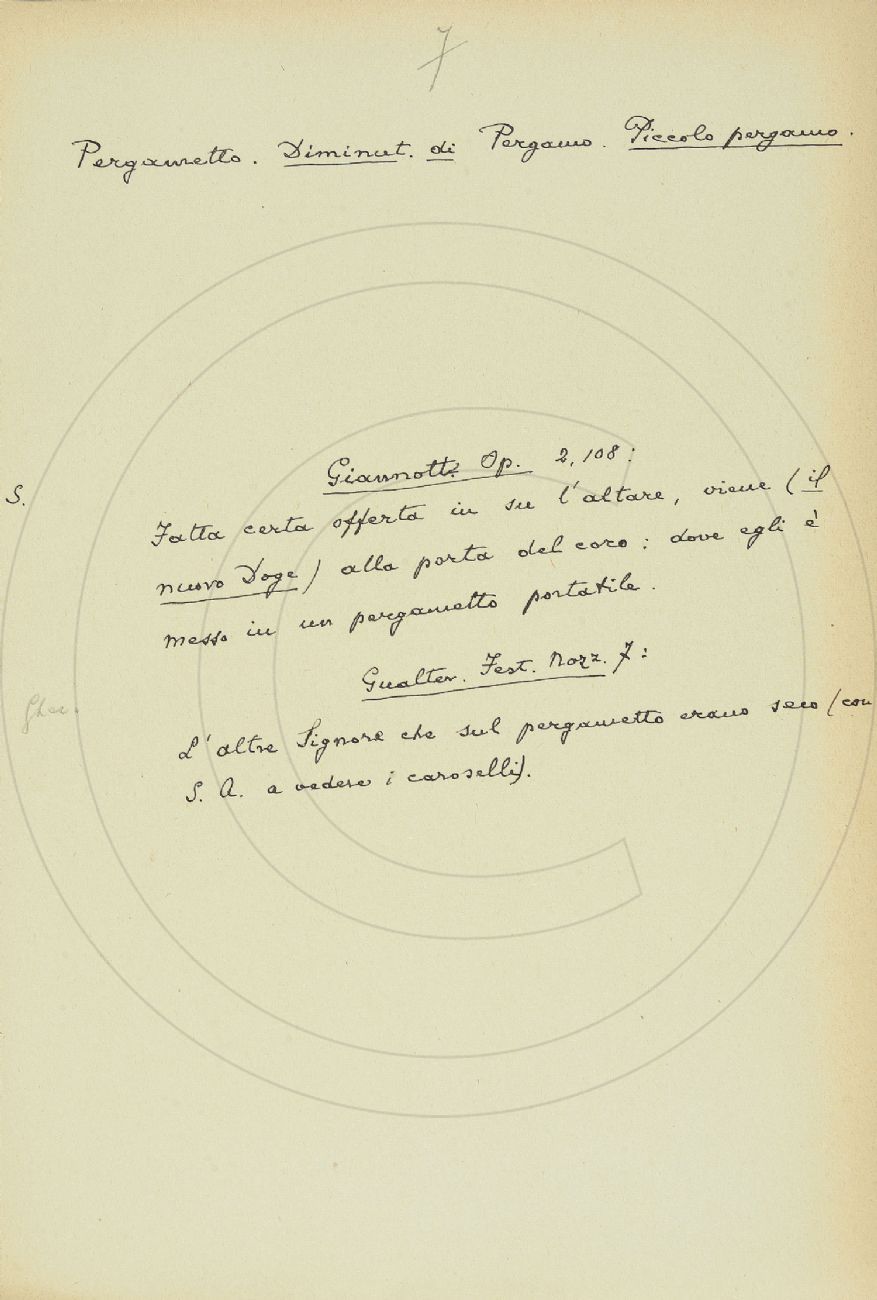 7
Pergametto. Diminut. di Pergamo. Piccolo pergamo.
Giannott. Op. 2, 108:
S.
Fatta certa offerta in su l'altare, viene (il
nuovo Doge) alla porta del coro: dove egli è
messo in un pergametto portatile.
Gualter. Fest. Nozz. 7:
Gher.
L'altre Signore che sul pergametto erano seco (con
S. A. a vedere i caroselli).